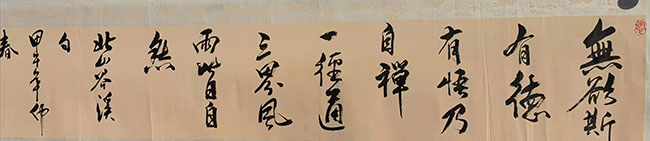 無欲斯
有德
有悟乃
自禪
一徑通
三界风
雨皆自
然
北山谷溪
句
甲午年仲
春